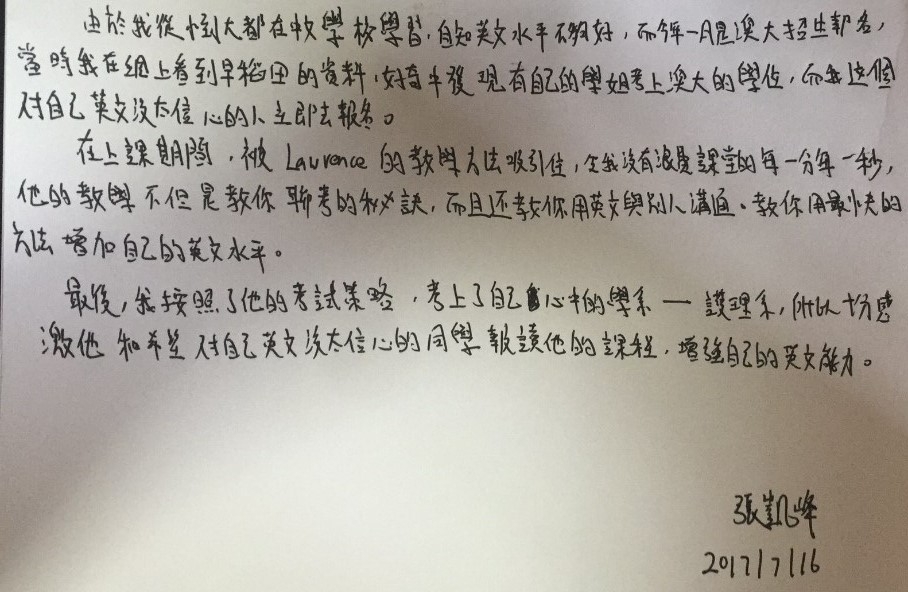 由於我從小到大都在中文學校學習，自知英文水平不夠好，而今年一月是澳大招生報名，
當時我在網上看到早稻田的資料，好奇牛發現有自己的學姐考上澳大的學位，而我這個
对自己英文沒太信心的人立即去報名。
在上課期間，被 Lawrence 的教學方法吸引住，令我沒有浪費課堂的每一分每一秒，
他的教學不但是教你聯考的秘訣，而且还教你用英文與別人溝通、教你用最快的
方法增加自己的英文水平。
最後，我按照了他的考試策略，考上了自己心中的學系 — 護理系，所以十分感
激他和希望对自己英文沒太信心的同學報讀他的課程，增強自己的英文能力。
張凱峰
2017/7/16